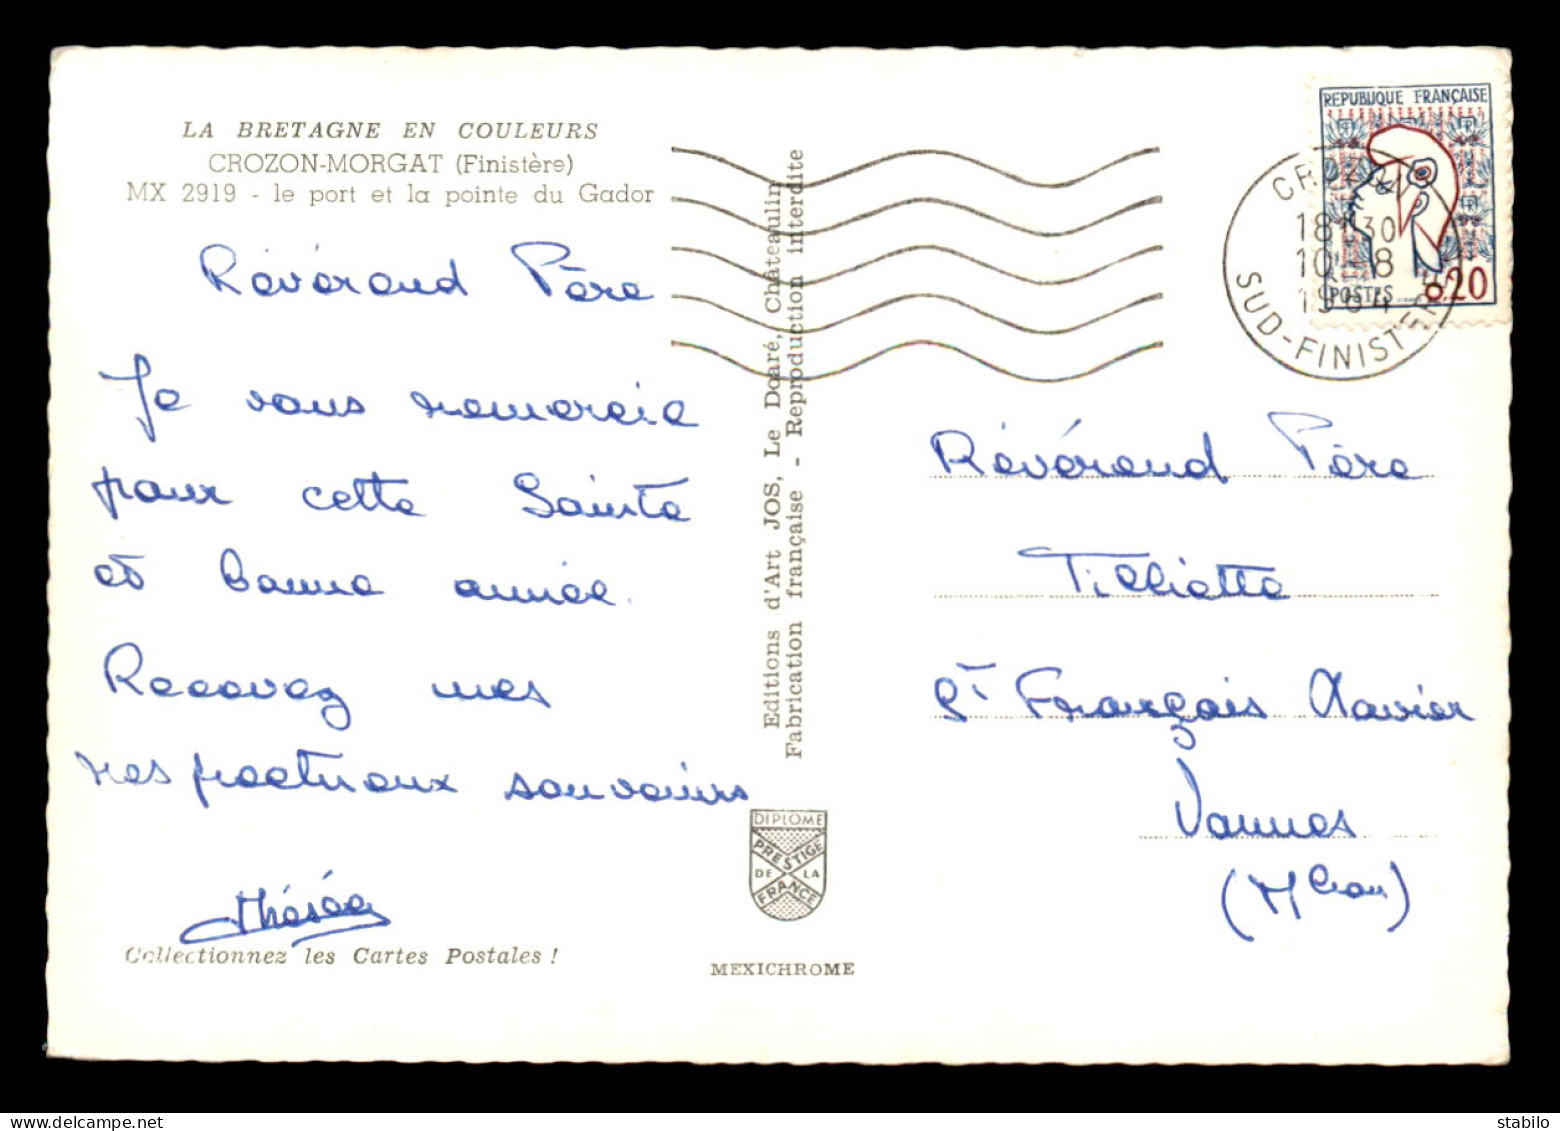 LA BRETAGNE EN COULEURS
CROZON-MORGAT (Finistère)
MX 2919 - le port et la pointe du Gador
Révérend Père
Je vous remercie
pour cette Sainte
et bonne année.
Recevez mes
respectueux souvenirs
Thérèse
Collectionnez les Cartes Postales !
Editions d'Art JOS, Le Doaré, Châteaulin
Fabrication française - Reproduction interdite
DIPLOME
PRESTIGE
DE LA
FRANCE
MEXICHROME
REPUBLIQUE FRANÇAISE
POSTES 0,20
18H30
10-8
1964
SUD-FINISTERE
Révérend Père
Tilliette
St François Xavier
Vannes
(Mhan)
stabilo